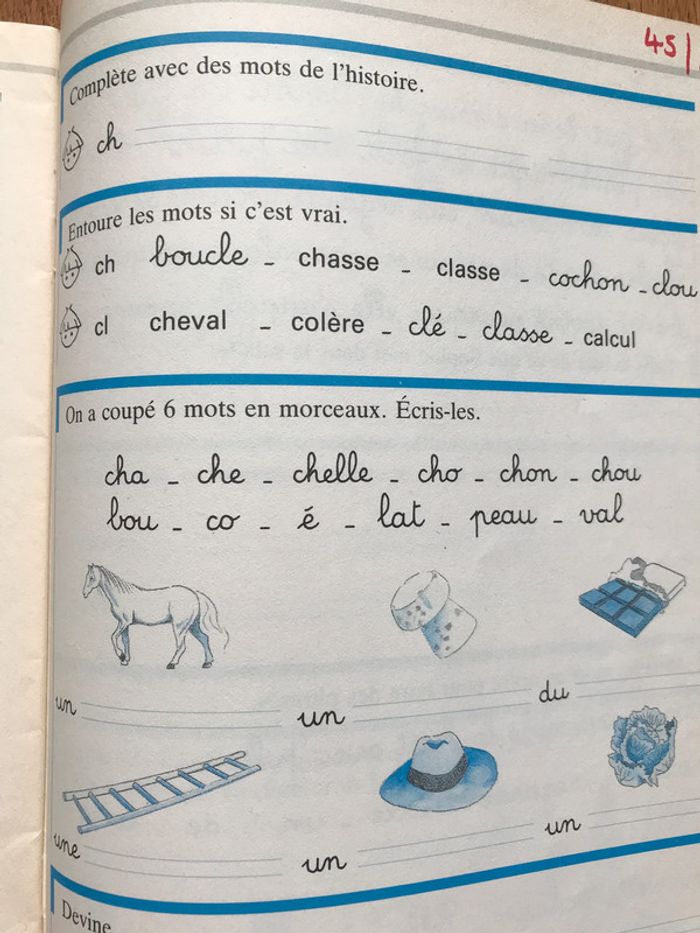 45
Complète avec des mots de l'histoire.
ch
Entoure les mots si c'est vrai.
ch boucle - chasse - classe - cochon - clou
cl cheval - colère - clé - classe - calcul
On a coupé 6 mots en morceaux. Écris-les.
cha - che - chelle - cho - chon - chou
bou - co - é - lat - peau - val
un un du
une un un
Devine